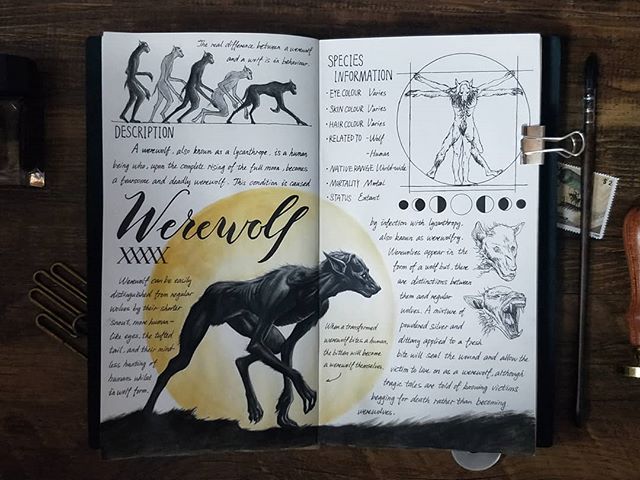 The real difference between a werewolf
and a wolf is in behaviour.
DESCRIPTION
A werewolf, also known as a lycanthrope, is a human
being who, upon the complete rising of the full moon, becomes
a fearsome and deadly werewolf. This condition is caused
Werewolf
XXXXX
Werewolf can be easily
distinguished from regular
wolves by their shorter
snout, more human-
like eyes, the tufted
tail, and their mind-
less hunting of
humans whilst
in wolf form.
When a transformed
werewolf bites a human,
the bitten will become
a werewolf themselves.
SPECIES
INFORMATION
· EYE COLOUR Varies
· SKIN COLOUR Varies
· HAIR COLOUR Varies
· RELATED TO -Wolf
-Human
· NATIVE RANGE World-wide
· MORTALITY Mortal
· STATUS Extant
by infection with lycanthropy,
also known as werewolfry.
Werewolves appear in the
form of a wolf but, there
are distinctions between
them and regular
wolves. A mixture of
powdered silver and
dittany applied to a fresh
bite will seal the wound and allow the
victim to live on as a werewolf, although
tragic tales are told of
victims
begging for death rather than becoming
werewolves.